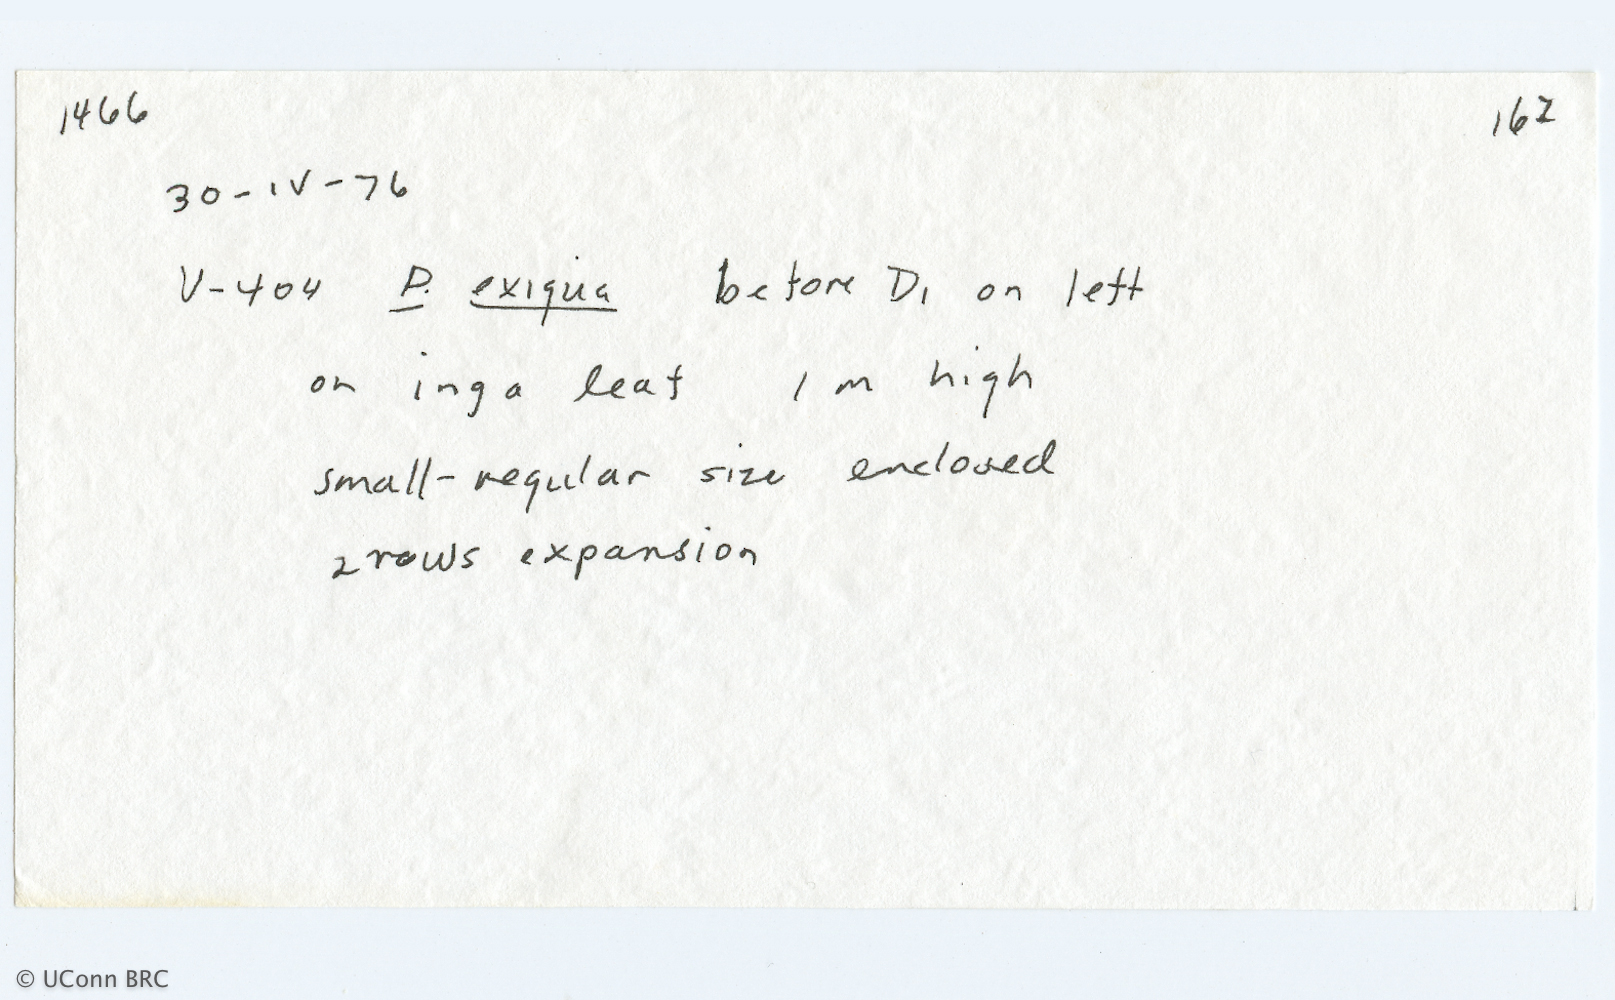 1466 162
30-IV-76
V-404 P. exiqua before D1 on left
on inga leaf 1 m high
small-regular size enclosed
2 rows expansion
© UConn BRC